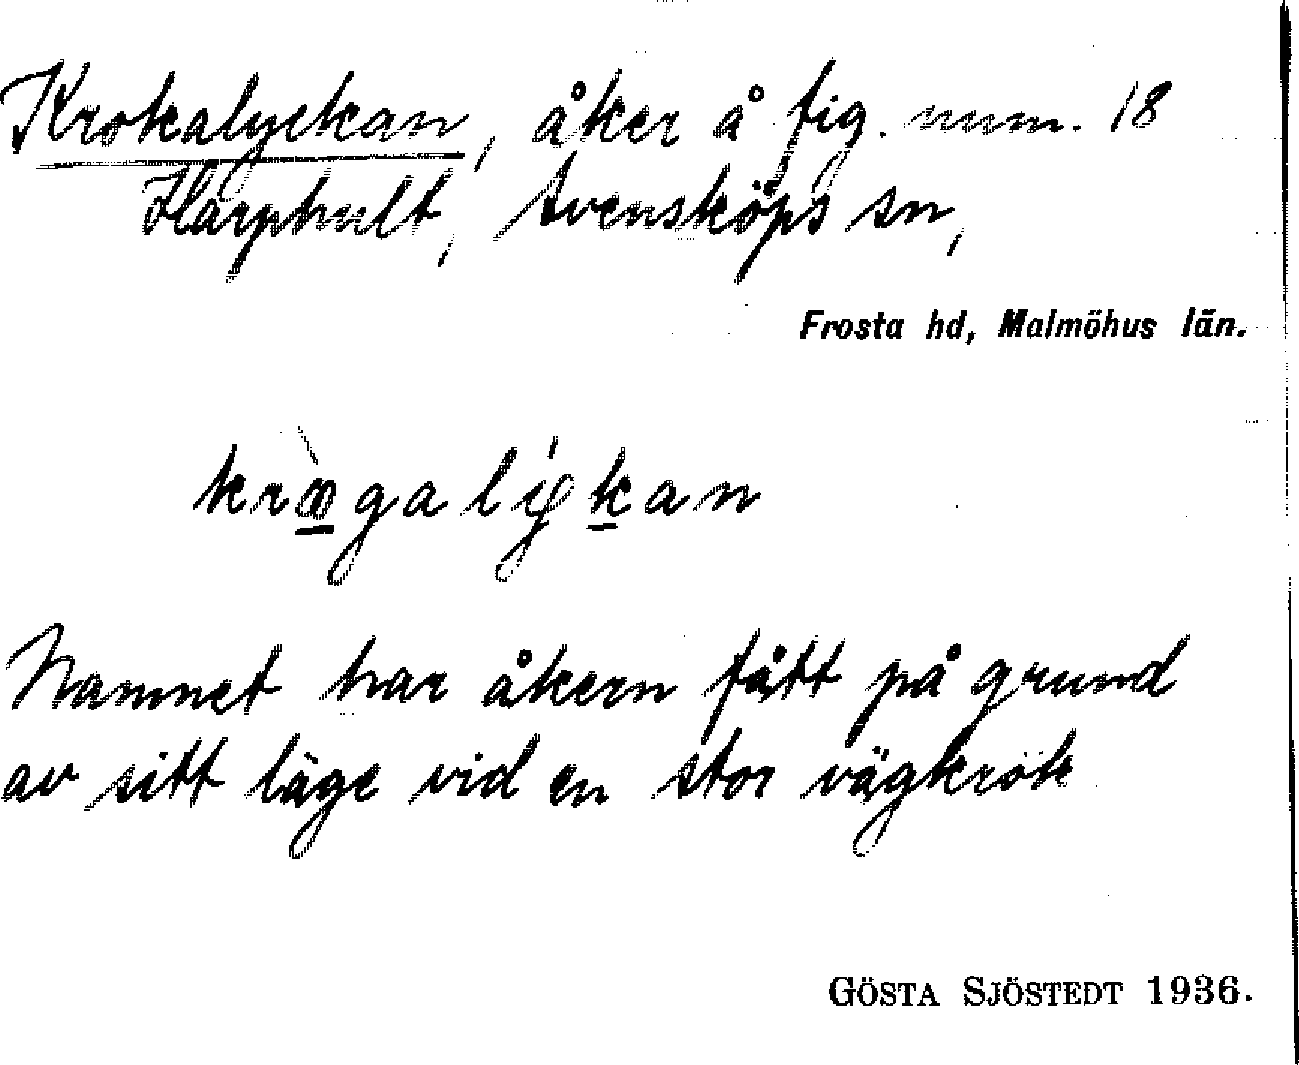 Krokalyckan, åker å fig. num. 18
Harphult, Svensköps sn,
Frosta hd, Malmöhus län.
Namnet har åkern fått på grund
av sitt läge vid en stor vägkrök
GÖSTA SJÖSTEDT 1936.